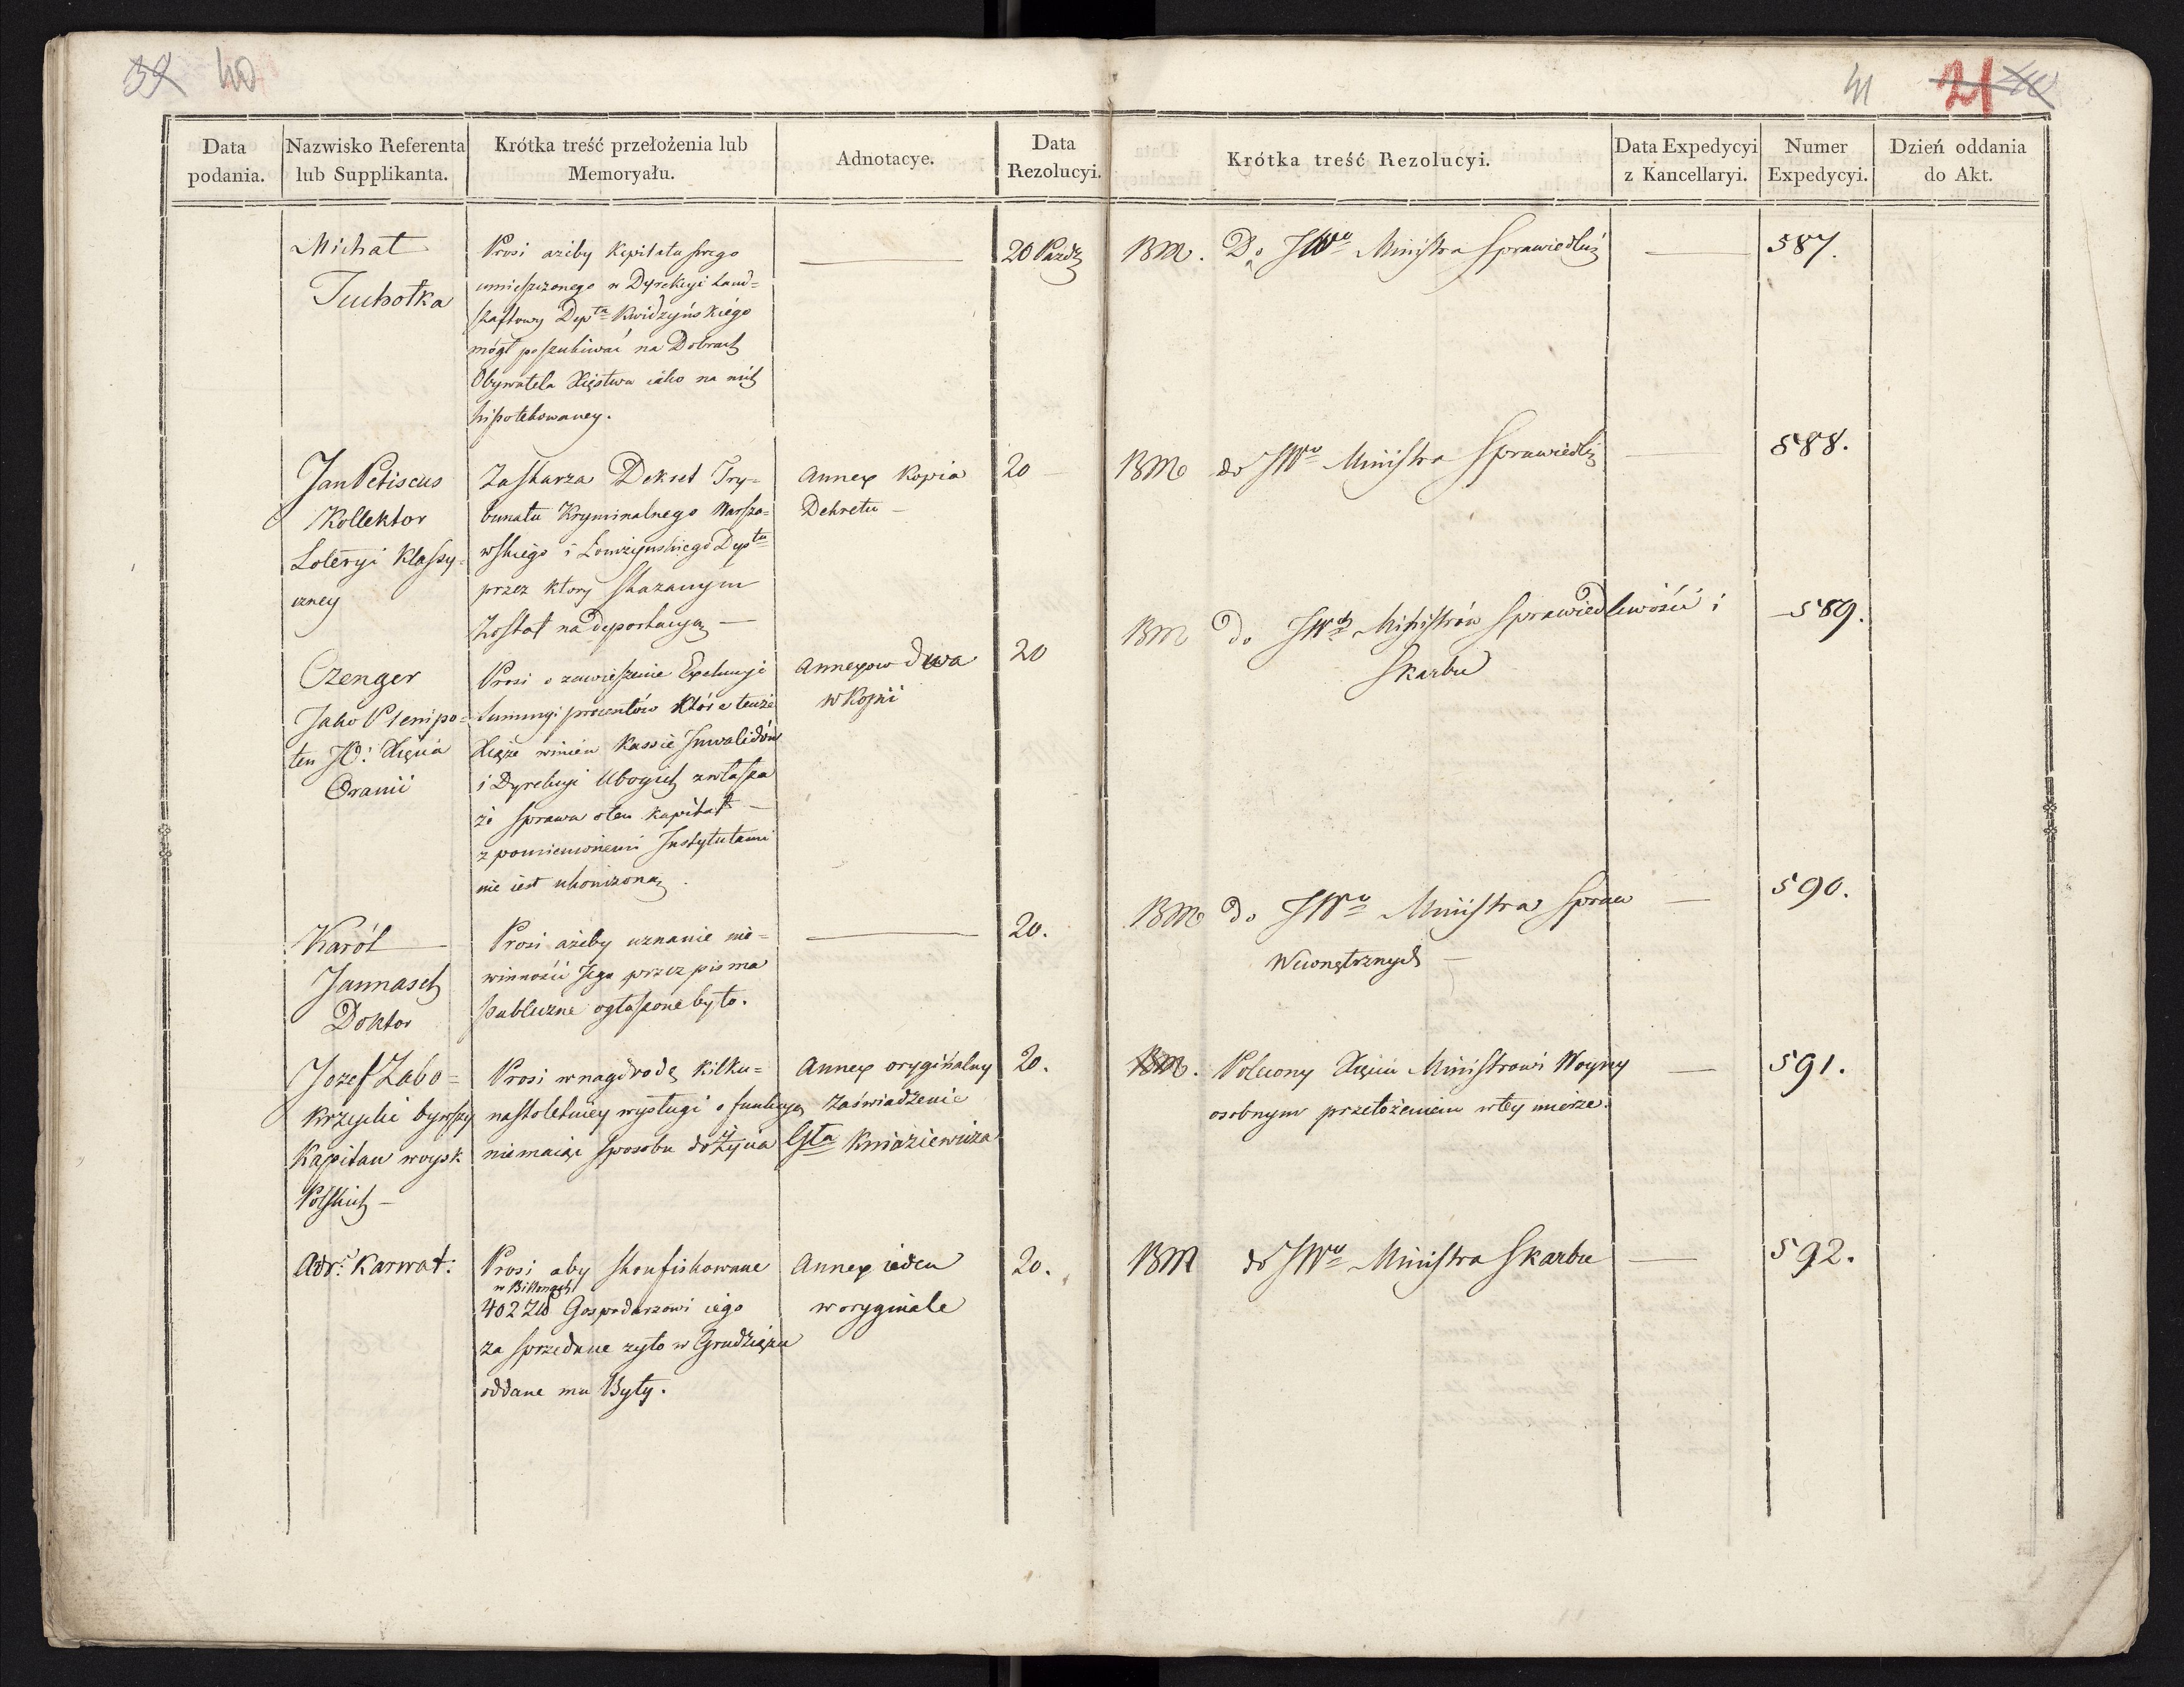 39 40
41 21 40
Data podania.
Nazwisko Referenta lub Supplikanta.
Krótka treść przełożenia lub Memoryału.
Adnotacye.
Data Rezolucyi.
Krótka treść Rezolucyi.
Data Expedycyi z Kancellaryi.
Numer Expedycyi.
Dzień oddania do Akt.
Michał
Tuchołka
Prosi ażeby Kapitału swego
umieszczonego w Dyrekcyi Land=
shaftowy Dep<sup>tu</sup> Kwidzyńskiégo
mógł poszukiwać na Dobrach
Obywatela Xięstwa iako na nich
hipotekowaney.
20 Paźdź
BM. Do JW<sup>o</sup> Ministra Sprawiedliś
587.
Jan Petiscus
Kollektor
Loteryi Klassy=
czney
Zaskarża Dekret Try=
bunału Kryminalnego Warsza=
wskiégo i Łomżyńskiego Dep<sup>tu</sup>
przez ktory skazanym
został na deportacyą —
Annex Kopia
Dekretu —
20 —
BM do JW<sup>o</sup> Ministra Sprawiedli
588.
Czenger
Jako Plenipo=
ten JO: Xięcia
Oranii
Prosi o zawieszenie Exekucyi
summy i procentów które tenże
Xiąże winien Kassie Inwalidów
i Dyrekcyi Ubogich zwłaszcza
że sprawa o ten kapitał —
z pomienionemi Instytutami
nie iest ukończoną.
Annexow dwa
w Kopii
20
BM do JW<sup>ch</sup> Ministrów Sprawiedliwości i
Skarbu
589.
Karól
Jannasch
Doktor
Prosi ażeby uznanie nie=
winności Jego przez pisma
publiczne ogłoszone było.
20.
BM do JW<sup>o</sup> Ministra Spraw
Wewnętrznych —
590.
Jozef Zabo=
krzycki bywszy
Kapitan woysk
Polskich —
Prosi w nagrodę kilku=
nastoletniey wysługi o funkcyą
niemaiąc sposobu do życia
Annex oryginalny
Zaświadżenie
Gła Kniaziewicza
20.
BM. Polecony Xięciu Ministrowi Woyny
osobnym przełożeniem w tey mierze.
591.
Adr: Karwat:
Prosi aby skonfiskowane
w Billonach
402 Zło Gospodarzowi iego
za sprzedane zyto w Grudziązu
oddane mu Były.
Annex ieden
w oryginale
20.
BM do JW<sup>o</sup> Ministra Skarbu
592.